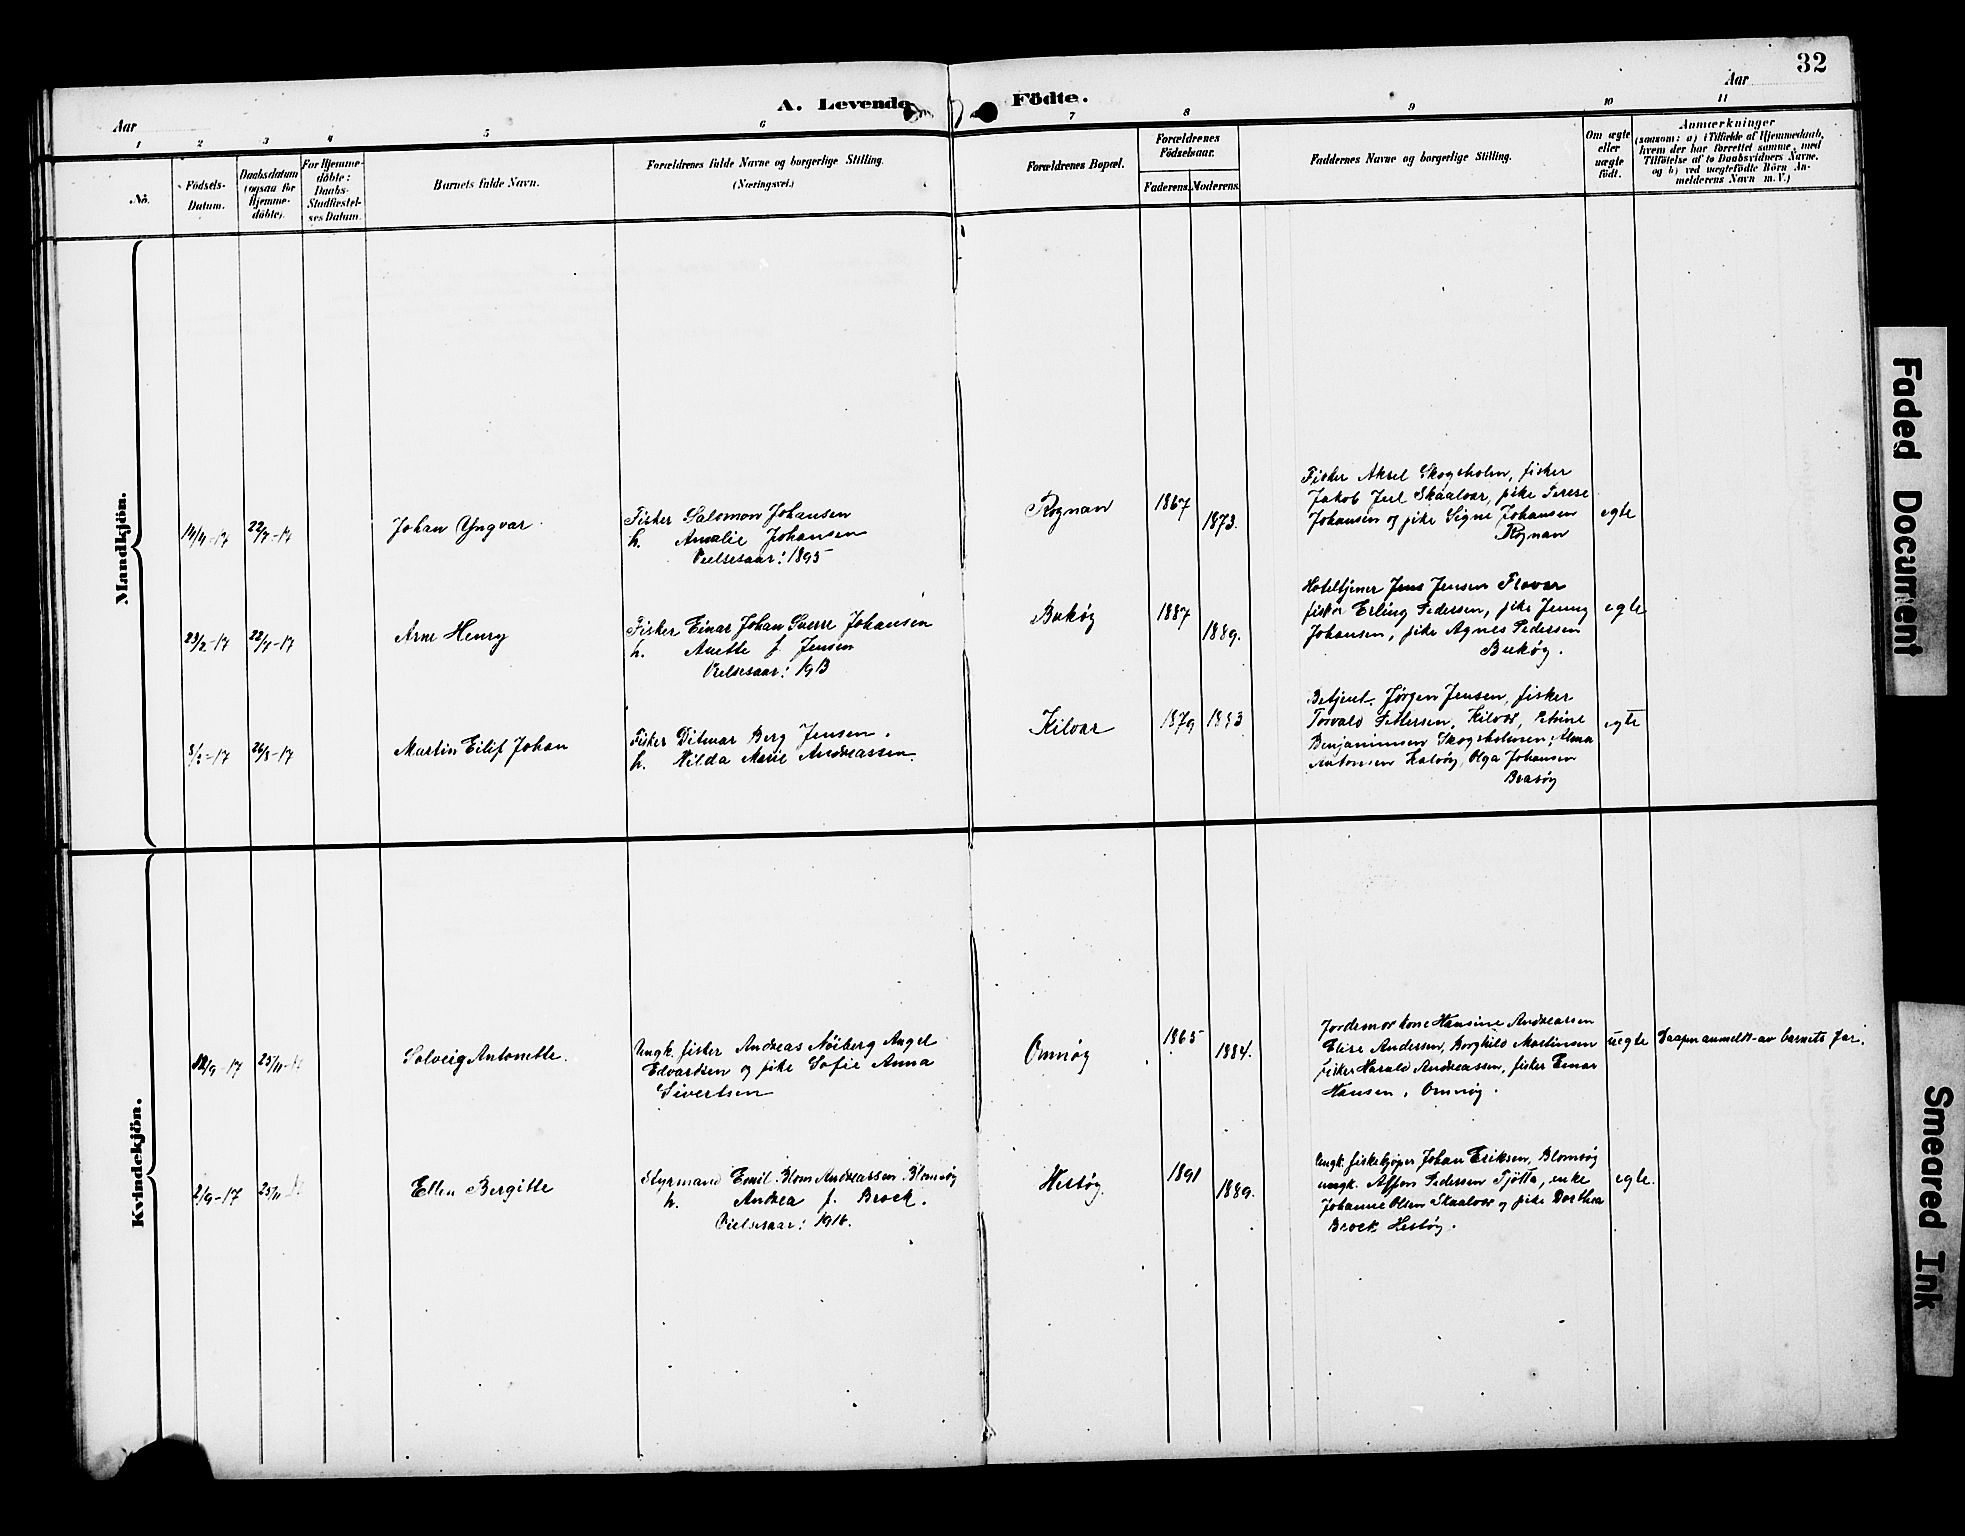 32
A. Levende Födte.
Aar
Aar
1 2 3 4 5 6 7 8 9 10 11
Nô.
Födsels-
Datum.
Daabsdatum
(ogsaa for
Hjemme-
döbte).
For Hjemme-
döbte:
Daabs-
Stadfæstel-
ses Datum.
Barnets fulde Navn.
Forældrenes fulde Navne og borgerlige Stilling.
(Næringsvei.)
Forældrenes Bopæl.
Forældrenes
Födselsaar.
Faderens. Moderens.
Faddernes Navne og borgerlige Stilling.
Om ægte
eller
uægte
födt.
Anmærkninger
(saasom: a) i Tilfælde af Hjemmedaab,
hvem der har forrettet samme, med
Tilföielse af to Daabsvidners Navne,
og b) ved uægtefödte Börn An-
melderens Navn m. V.)
Mandkjön.
14/4-17
22/7-17
Johan Yngvar
Fisker Salomon Johansen
h. Amalie Johansen
Vielsesaar: 1895
Rognan
1867
1873.
Fisker Aksel Skogsholm, fisker
Jakob Juul Skaalvær, pike Terese
Johansen og pike Signe Johansen
Rognan
egte
23/2-17
22/7-17
Arne Henry
Fisker Einar Johan Sverre Johansen
h. Anette f. Jensen
Vielsesaar: 1913
Buköy
1887
1889.
Hoteltjener Jens Jensen Flovær
fisker Erling Pedersen, pike Jenny
Johansen, pike Agnes Pedersen
Buköy.
egte
26/8-17
Martin Eilif Johan
Fisker Ditmar Berg Jensen.
h. Hilda Marie Andreassen.
Kilvær
1879
1883
Betjent. Jörgen Jensen, fisker
Torvald Pedersen, Kilvær, Petrine
Benjaminsen Skogsholmen, Alma
Antonsen Kalvöy, Olga Johansen
Brasöy
egte
Kvindekjön.
25/11-17
Solveig Antonette.
Ungk. fisker Andreas Nöiberg Angel
Edvardsen og pike Sofie Anna
Sivertsen
Omnöy
1865
1884.
Jordemor kone Hansine Andreassen
Elise Andersen, Borghild Martinsen
fisker Harald Andreassen, fisker Einar
Hansen, Omnöy.
uegte
Daapen anmeldt av barnets far.
2/9-17
25/11
Ellen Bergitte
Styrmand Emil Blom Andreassen Blomsöy
h. Andrea f. Brock.
Vielsesaar: 1916.
Hestöy.
1891
1889.
Ungk. fiskekjöper Johan Eriksen, Blomsöy
ungk. Alfson Pedersen Tjötta, enke
Johanne Olsen Skaalvær og pike Dorthea
Brock Hestöy.
egte.
Faded Document
Smeared Ink